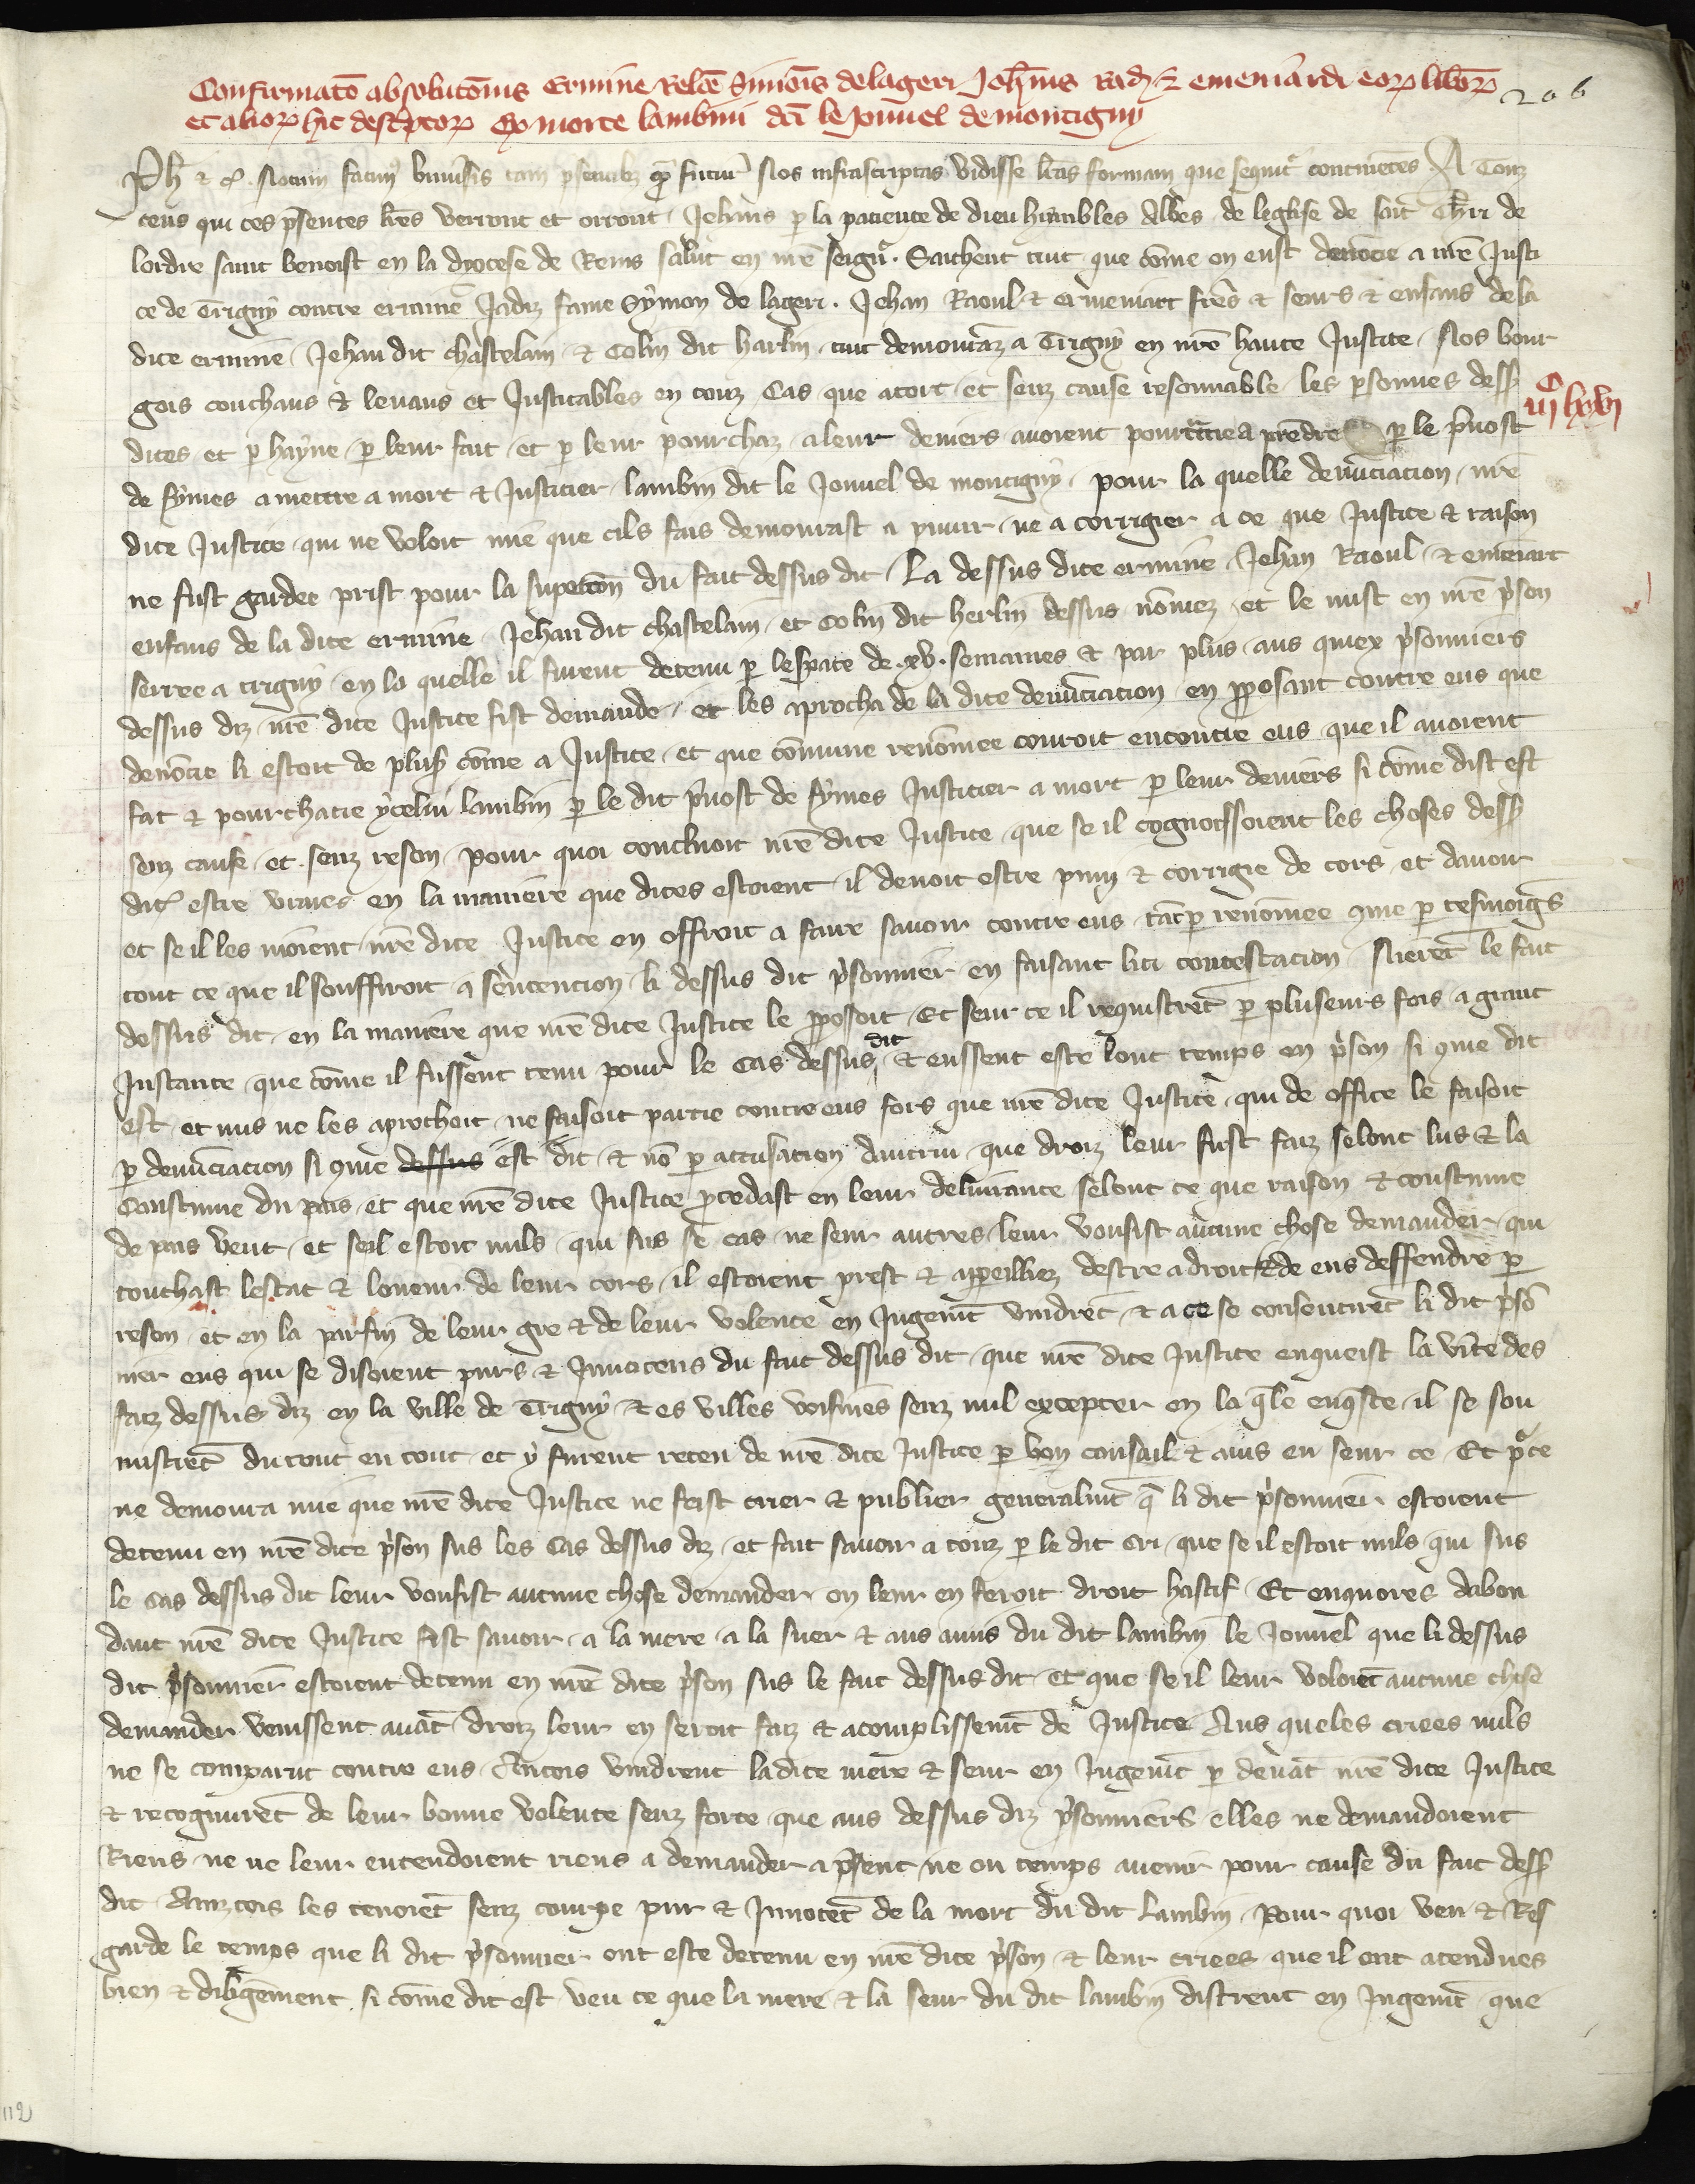 Confirmatō absolutōnis Ermine Relc̄e Simōis de lageri Joh̄nis Rad̄ & emeniardi eoꝝ liboꝝ 206
et alioꝝ hic descͥptoꝝ Ex morte lambini dc̄i le Jouuel de montigny
Ph̄ & c̄. Notum facimꝰ vniūsis tam p̄sentibꝫ qͣ̄ futurͥ Nos infrascriptas vidisse lrās formam que sequitͬ continētes A Touz
ceus qui ces p̄sentes lrēs verront et orront / Jehans ꝑ la patience de dieu humbles Abbes de leglise de saīt Thr̄ri de
lordre saint benoist en la dyocese de Reins salut en nrē seignͬ. Saichent tuit que cōme on eust denōcie a nrē Justi
ce de Trigny contre ermine Jadiz fame Symon de lageri. Jehan Raoul & ermeniart freres & seurs & enfans de la
dite ermine / Jehan dit chastelain / & Colin dit harlin / tuit demoranz a Trigny en nrē haute Justice / Nos bour
gois couchans & leuans et Justicables en touz Cas que a tort et senz cause resonnable les ꝑsonnes dess̄
iijͨ lxvj
dites et ꝑ hayne / ꝑ leur fait et ꝑ leur pourchaz a leur deniers auoient pourchacie a prēdre ꝑ le p̄uost
de fymes a mettre a mort & Justicier lambin dit le Jouuel de montigny / pour la quelle denūciacion / nrē
dite Justice qui ne voloit mie que cils fais demourast a punir / ne a corrigier a ce que Justice & raison
ne fust gardee prist pour la supecōn du fait dessus dit / La dessus dite ermine / Jehan Raoul / & emeniart
enfans de la dite ermine / Jehan dit chastelain / et Colin dit herlin dessus nōmez et le mist en nrē pͥson
serree a trigny en la quelle il furent detenu ꝑ lespace de .xv. semaines & par plus / aus quiex pͥsonniers
dessus diz nrē dite Justice fist demande / et les aprocha de la dite denūciacion en ꝓposant contre eus que
denōcie li estoit de plus̄ cōme a Justice / et que cōmune renōmee couroit encontre eus que il auoient
fait & pourchacie ycelui lambin ꝑ le dit p̄uost de fymes Justicier a mort ꝑ leur deniers si cōme dist est
senz cause et senz reson pour quoi concluoit nrē dite Justice que se il cognoissoient les choses dess̄
dit̄ estre vraies en la maniere que dites estoient il deuoit estre puny & corrigie de cors et dauoir
et se il les nioient nrē dite Justice en offroit a faire sauoir contre eus tāt ꝑ renōmee ꝯme ꝑ tesmoigs
tout ce que il souffiroit a sentencion li dessus dit pͥsonnier en faisant liti contestacion Nierēt le fait
dessus dit en la maniere que nrē dite Justice le ꝓposoit Et seur ce il requistrēt ꝑ pluseurs fois a grant
Instance que cōme il fussent tenu pour le cas dessus dit & eussent este lont temps en pͥson si ꝯme dit
est et nus ne les aprochoit ne faisoit partie contre eus fors que nrē dite Justice qui de office le faisoit
ꝑ denūciacion si ꝯme dessus est dit & nō ꝑ accusacion dautrui que droiz leur fust faiz selont lus & la
Coustume du pais et que nrē dite Justice ꝓcedast en leur deliurance selont ce que raison & coustume
de pais veut et seil estoit nuls qui sus se cas ne seur autres leur vousist aucune chose demander qui
touchast lestat & loneur de leur cors il estoient prest & apeilliez destre a droit & de eus deffendre ꝑ
reson et en la parfin de leur gre & de leur volente en Jugemt̄ vindrēt & a ce se consentirēt li dit pͥsō
nier eus qui se disoient purs & Innocens du fait dessus dit que nrē dite Justice enqueist la vīte des
faiz dessus diz en la ville de Trigny & es villes voisines senz nul excepter en la q̄le enq̄ste il se sou
mistrēt du tout en tout et y furent receu de nrē dite Justice ꝑ bon consail & auis eu seur ce Et pͬ ce
ne demoura mie que nrē dite Justice ne feist crier & publier generalmt̄ q̄ li dit pͥsonnier estoient
detenu en nrē dite pͥson sus les Cas dessus diz et fait sauoir a touz ꝑ le dit cri que se il estoit nuls qui sus
le cas dessus dit leur vousist aucune chose demander on leur en feroit droit hastif Et enquores dabon
dant nrē dite Justice fist sauoir a la mere a la suer & aus amis du dit lambin le Jouuel que li dessus
dit pͥsonnier estoient detenu en nrē dite pͥson sus le fait dessus dit et que se il leur voloiēt aucune chose
demander venissent auāt droiz leur en seroit faiz & acomplissemt̄ de Justice Aus queles criees nuls
ne se comparut contre eus Aincois vindrent ladite mere & seur en Jugemt̄ ꝑ deuāt nrē dite Justice
& recognurēt de leur bonne volente senz force que aus dessus diz pͥsonniers elles ne demandoient
Riens ne ne leur entendoient riens a demander a p̄sent ne ou temps auenir pour cause du fait dess̄
dit Ainzcois les tenoiēt senz courpe pur & Innocēt de la mort du dit Lambin Pour quoi veu & Res
garde le temps que li dit pͥsonnier ont este detenu en nrē dite pͥson & leur criees que il ont atendues
bien & diligēment si cōme dit est veu ce que la mere & la seur du dit lambin distrent en Jugemt̄ que